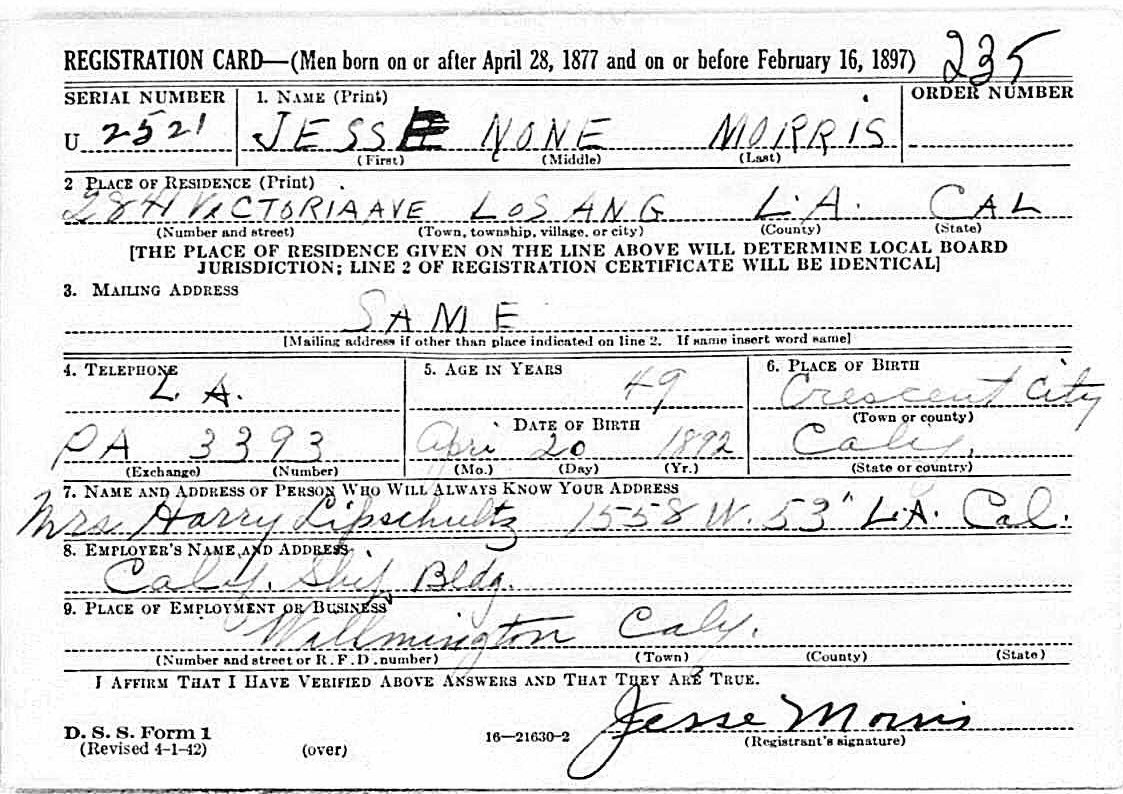 REGISTRATION CARD—(Men born on or after April 28, 1877 and on or before February 16, 1897) 235
SERIAL NUMBER 1. NAME (Print) ORDER NUMBER
U 2521 JESSE NONE MORRIS
(First) (Middle) (Last)
2 PLACE OF RESIDENCE (Print)
2841 VICTORIA AVE LOS ANG L.A. CAL
(Number and street) (Town, township, village, or city) (County) (State)
[THE PLACE OF RESIDENCE GIVEN ON THE LINE ABOVE WILL DETERMINE LOCAL BOARD
JURISDICTION; LINE 2 OF REGISTRATION CERTIFICATE WILL BE IDENTICAL]
3. MAILING ADDRESS
SAME
[Mailing address if other than place indicated on line 2. If same insert word same]
4. TELEPHONE 5. AGE IN YEARS 6. PLACE OF BIRTH
L.A. 49 Crescent City
DATE OF BIRTH (Town or county)
PA 3393 Apri 20 1892 Calif.
(Exchange) (Number) (Mo.) (Day) (Yr.) (State or country)
7. NAME AND ADDRESS OF PERSON WHO WILL ALWAYS KNOW YOUR ADDRESS
Mrs Harry Lipschultz 1558 W. 53" L.A. Cal.
8. EMPLOYER'S NAME AND ADDRESS
Calif. Ship Bldg.
9. PLACE OF EMPLOYMENT OR BUSINESS
Willmington Calif.
(Number and street or R. F. D. number) (Town) (County) (State)
I AFFIRM THAT I HAVE VERIFIED ABOVE ANSWERS AND THAT THEY ARE TRUE.
Jesse Morris
D. S. S. Form 1
(Revised 4-1-42) (over) 16—21630-2 (Registrant's signature)